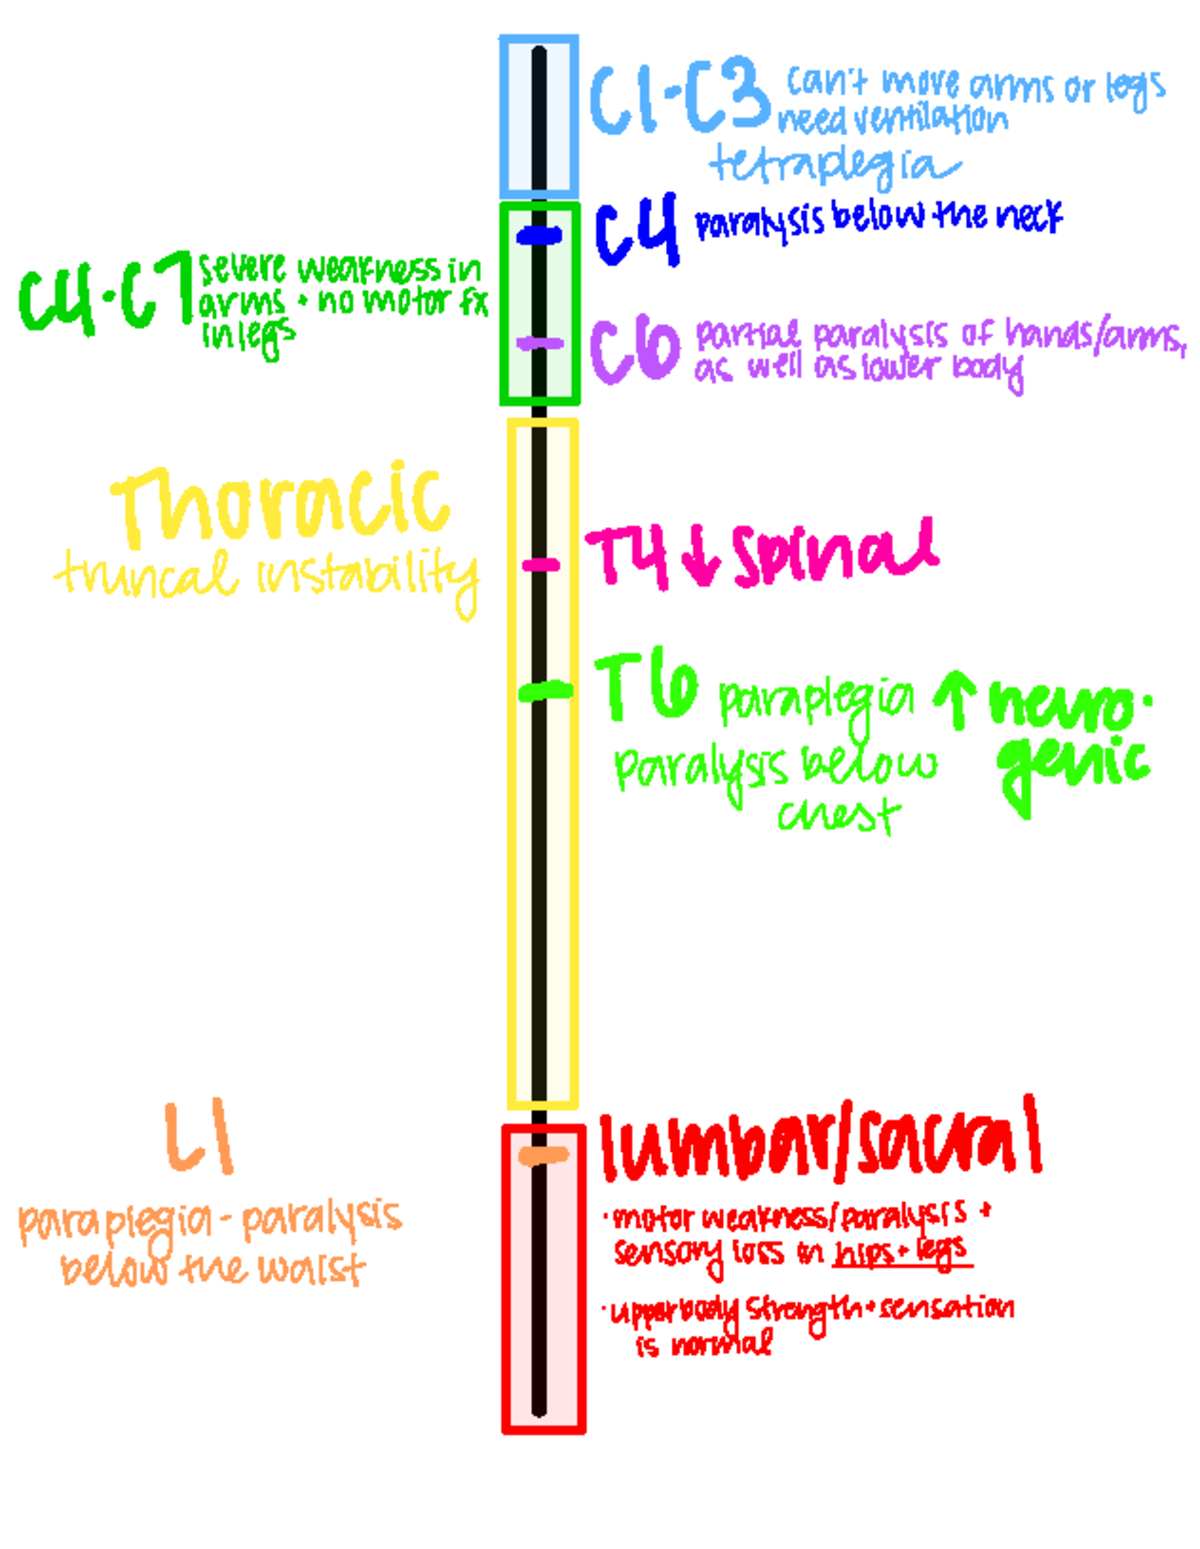 C1-C3 can't move arms or legs
need ventilation
tetraplegia
C4 paralysis below the neck
C4-C7 severe weakness in
arms + no motor fx
in legs
C6 partial paralysis of hands/arms,
as well as lower body
Thoracic
truncal instability
T4 ↓ spinal
T6 paraplegia ↑ neuro-
genic
paralysis below
chest
L1
paraplegia - paralysis
below the waist
lumbar/sacral
· motor weakness/paralysis +
sensory loss in hips + legs
· upper body strength + sensation
is normal